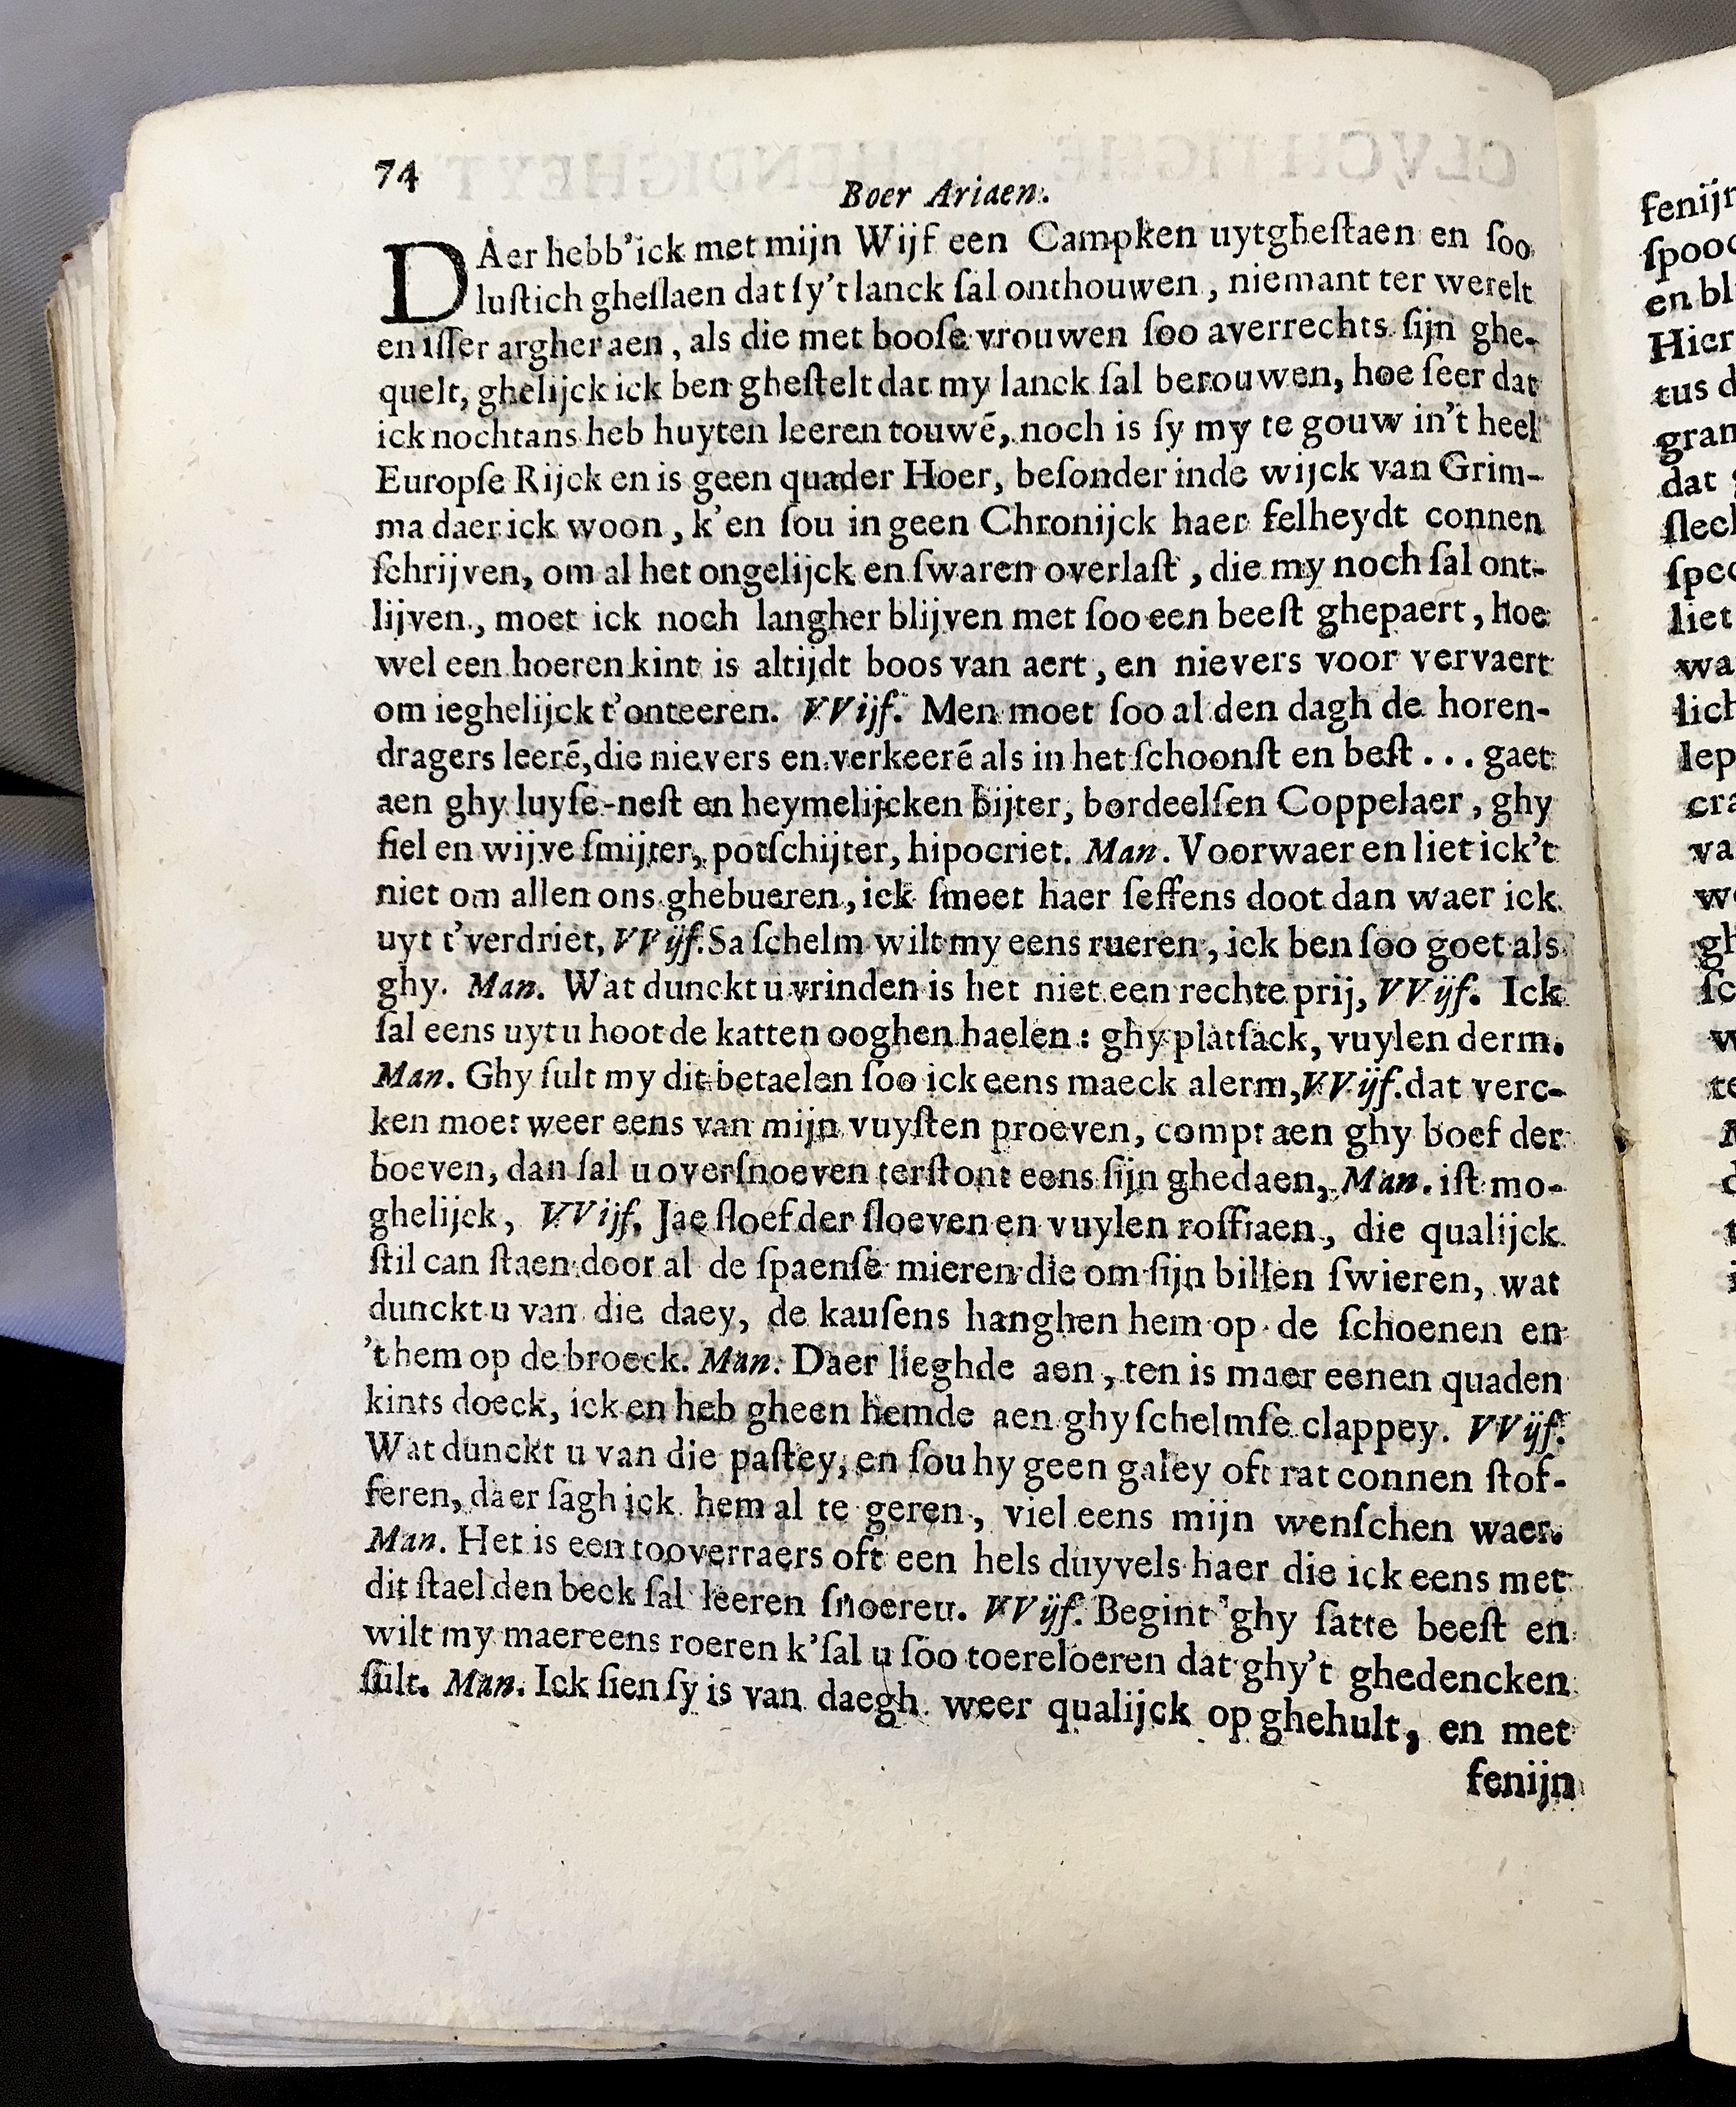 74
Boer Ariaen.
DAer hebb'ick met mijn Wijf een Campken uytgheſtaen en ſoo
luſtich gheſlaen dat ſy't lanck ſal onthouwen, niemant ter werelt
en iſſer argher aen, als die met booſe vrouwen ſoo averrechts ſijn ghe-
quelt, ghelijck ick ben gheſtelt dat my lanck ſal berouwen, hoe ſeer dat
ick nochtans heb huyten leeren touwē, noch is ſy my te gouw in't heel
Europſe Rijck en is geen quader Hoer, beſonder inde wijck van Grim-
ma daer ick woon, k'en ſou in geen Chronijck haer felheydt connen
ſchrijven, om al het ongelijck en ſwaren overlaſt, die my noch ſal ont-
lijven, moet ick noch langher blijven met ſoo een beeſt ghepaert, hoe
wel een hoeren kint is altijdt boos van aert, en nievers voor vervaert
om ieghelijck t'onteeren. VVijf. Men moet ſoo al den dagh de horen-
dragers leerē, die nievers en verkeerē als in het ſchoonſt en beſt ... gaet
aen ghy luyſe-neſt en heymelijcken bijter, bordeelſen Coppelaer, ghy
fiel en wijve ſmijter, potſchijter, hipocriet. Man. Voorwaer en liet ick't
niet om allen ons ghebueren, ick ſmeet haer ſeffens doot dan waer ick
uyt t'verdriet, VVijf. Sa ſchelm wilt my eens rueren, ick ben ſoo goet als
ghy. Man. Wat dunckt u vrinden is het niet een rechte prij, VVijf. Ick
ſal eens uyt u hoot de katten ooghen haelen: ghy platſack, vuylen derm.
Man. Ghy ſult my dit betaelen ſoo ick eens maeck alerm, VVijf. dat verc-
ken moet weer eens van mijn vuyſten proeven, compt aen ghy boef der
boeven, dan ſal u overſnoeven terſtont eens ſijn ghedaen, Man. iſt mo-
ghelijck, VVijf, Jae ſloef der ſloeven en vuylen roffiaen, die qualijck
ſtil can ſtaen door al de ſpaenſe mieren die om ſijn billen ſwieren, wat
dunckt u van die daey, de kauſens hanghen hem op de ſchoenen en
't hem op de broeck. Man. Daer lieghde aen, ten is maer eenen quaden
kints doeck, ick en heb gheen hemde aen ghy ſchelmſe clappey. VVijf.
Wat dunckt u van die paſtey, en ſou hy geen galey oft rat connen ſtof-
feren, daer ſagh ick hem al te geren, viel eens mijn wenſchen waer.
Man. Het is een tooverraers oft een hels duyvels haer die ick eens met
dit ſtael den beck ſal leeren ſnoeren. VVijf. Begint ghy ſatte beeſt en
wilt my maer eens roeren k'ſal u ſoo toereloeren dat ghy't ghedencken
ſult. Man. Ick ſien ſy is van daegh weer qualijck op ghehult, en met
fenijn